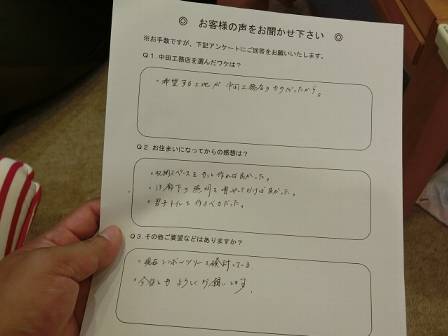 ◎ お客様の声をお聞かせ下さい ◎
※お手数ですが、下記アンケートにご回答をお願いいたします。
Q1 中田工務店を選んだワケは？
・希望する土地が中田工務店の だったから。
Q2 お住まいになってからの感想は？
・収納スペースを 作れば良かった。
・ 廊下の照明を増やしておけば良かった。
・男子トイレを作るべきだった。
Q3 その他ご要望などはありますか？
・現在シンボルツリーを検討している
・今後ともよろしくお願いします。